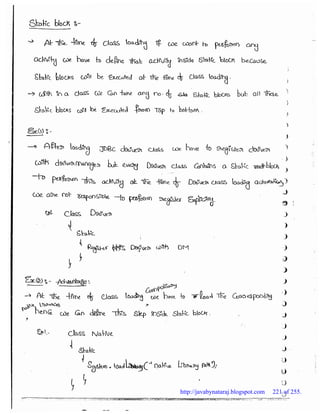 Static block :-
→ At the time of class loading if we want to perform any
activity we have to define that activity inside static block because
static blocks will be executed at the time of class loading.
→ with in a class we can take any no. of static blocks but all these
static blocks will be executed from top to bottom.
Ex(1) :-
→ After loading JDBC driver class we have to register driver
with driver manager but every Driver class contains a static block
to perform this activity at the time of Driver class loading automatically
we are not responsible to perform register Explicitly.
Ex: class Driver
{
static
{
Register this Driver with DM
}
}
Ex(2) :- Advantage :
→ At the time of class loading compulsory we have to load the corresponding
native libraries
hence we can define this step inside static block.
Ex:- class Native
{
static
{
System.loadLibrary("native library path");
}
}
http://javabynataraj.blogspot.com 221 of 255.